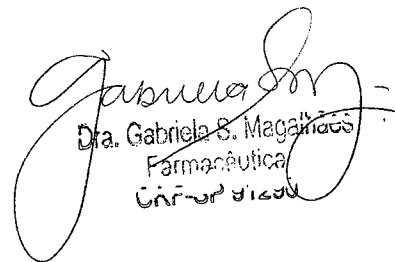 Gabriela
Dra. Gabriela S. Magalhães
Farmacêutica
CRF-SP